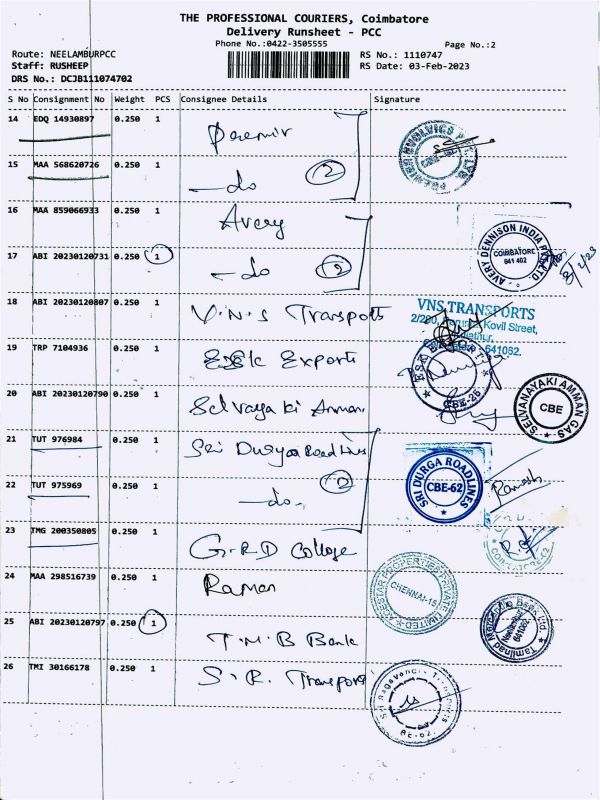 THE PROFESSIONAL COURIERS, Coimbatore
Delivery Runsheet - PCC
Phone No.:0422-3505555
Page No.:2
Route: NEELAMBURPCC
RS No.: 1110747
Staff: RUSHEEP
RS Date: 03-Feb-2023
DRS No.: DCJB111074702
S No Consignment No Weight PCS Consignee Details Signature
14 EDQ 14930897 0.250 1
15 MAA 568620726 0.250 1 - do (2)
16 MAA 859066933 0.250 1 Avery
AVERY DENNISON INDIA PVT. LTD. COIMBATORE 641 402
17 ABI 20230120731 0.250 1 - do (2)
18 ABI 20230120807 0.250 1 V.N.S Transports
VNS TRANSPORTS
Kovil Street,
641062.
19 TRP 7104936 0.250 1 Exports
CBE-25
20 ABI 20230120790 0.250 1 Selvayaki Amman
SELVANAYAKI AMMAN GAS CBE
21 TUT 976984 0.250 1 Sri Durga Road Lines
SRI DURGA ROADLINES CBE-62
22 TUT 975969 0.250 1 - do. (2)
Ramesh
23 TMG 200350805 0.250 1 G.R.D College
24 MAA 298516739 0.250 1 Raman
PROPERTIES PRIVATE LIMITED CHENNAI-15
25 ABI 20230120797 0.250 1 T.M.B Bank
Tamilnad Mercantile Bank Ltd. Neelambur 641062
26 TMI 30166178 0.250 1 S.R. Transport